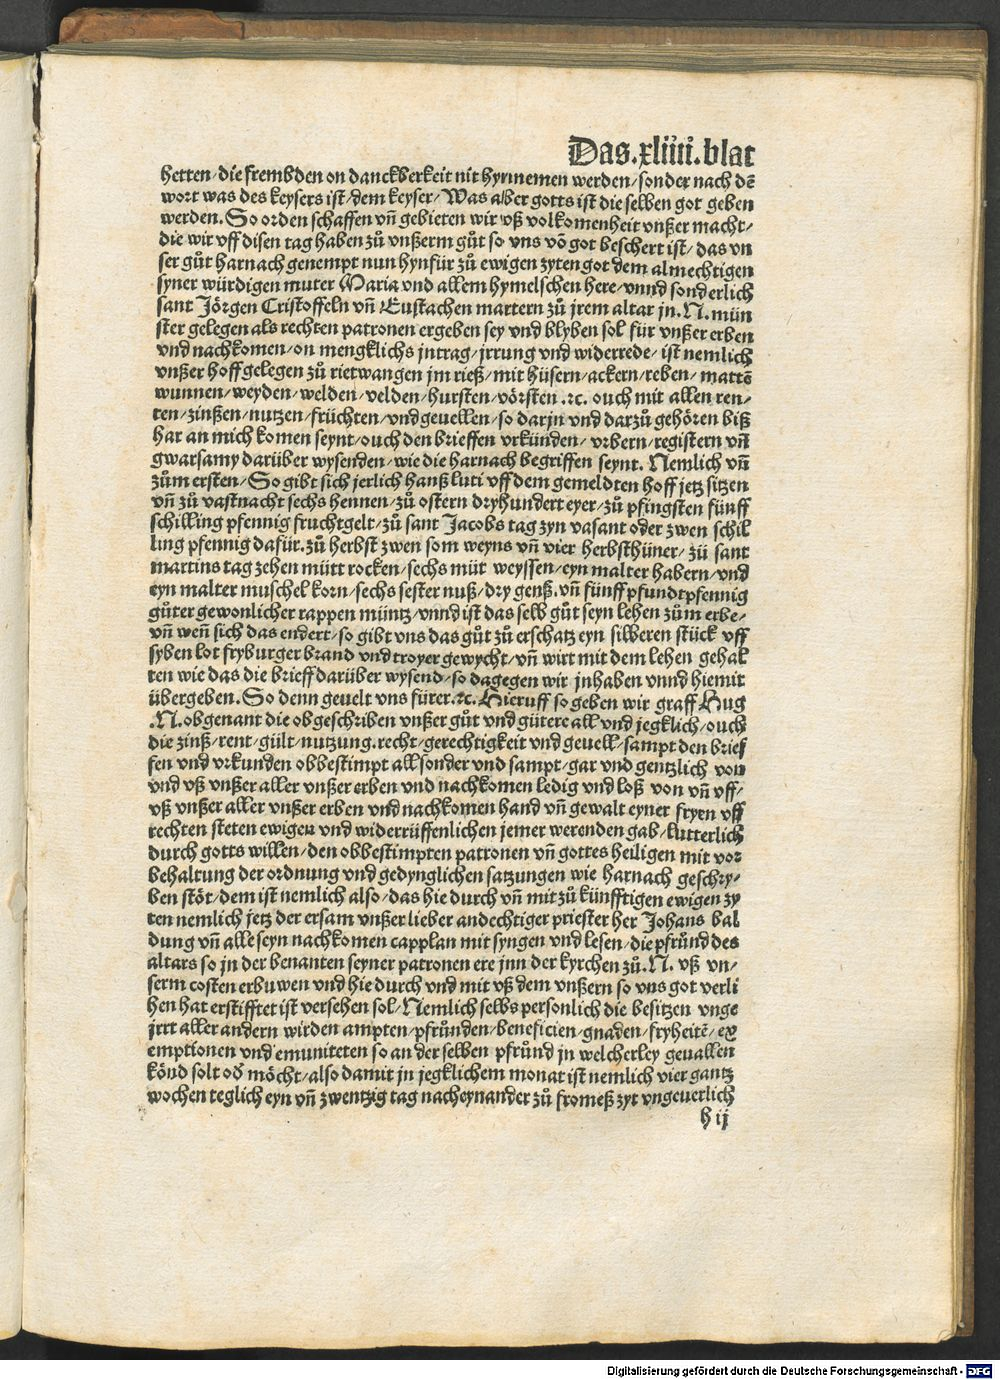 Das.xliiii.blat
hetten/die frembden on danckberkeit nit hynnemen werden/sonder nach dē
wort was des keysers ist/dem keyser/Was aber gotts ist die selben got geben
werden. So orden schaffen vñ gebieten wir vß volkomenheit vnßer macht/
die wir vff disen tag haben zů vnßerm gůt so vns vō got beschert ist/das vn
ser gůt harnach genempt nun hynfür zů ewigen zyten got dem almechtigen
syner würdigen muter Maria vnd allem hymelschen here/vnnd sonderlich
sant Jörgen Cristoffeln vñ Eustachen martern zů jrem altar jn.N.mün
ster gelegen als rechten patronen ergeben sey vnd blyben sol für vnßer erben
vnd nachkomen/on mengklichs jntrag/jrrung vnd widerrede/ist nemlich
vnßer hoff gelegen zů rietwangen jm rieß/mit hüsern/ackern/reben/mattē
wunnen/weyden/welden/velden/hursten/vörsten.ꝛc.ouch mit allen ren/
ten/zinßen/nutzen/früchten/vnd geuellen/so darjn vnd darzů gehören biß
har an mich komen seynt/ouch den brieffen vrkünden/vrbern/registern vñ
gwarsamy darüber wysenden/wie die harnach begriffen seynt. Nemlich vñ
zům ersten/So gibt sich jerlich hanß luti vff dem gemeldten hoff jetz sitzen
vñ zů vastnacht sechs hennen/zů ostern dryhundert eyer/zů pfingsten fünff
schilling pfennig fruchtgelt/zů sant Jacobs tag zyn vasant oder zwen schil
ling pfennig dafür.zů herbst zwen som weyns vñ vier herbsthüner/zů sant
martins tag zehen mütt rocken/sechs müt weyssen/eyn malter habern/vnd
eyn malter muschel korn/sechs sester nuß/dry genß.vñ fünff pfundt pfennig
gůter gewonlicher rappen müntz/vnnd ist das selb gůt seyn lehen zům erbe/
vñ weñ sich das endert/so gibt vns das gůt zů erschatz eyn silberen stück vff
syben lot fryburger brand vnd troyer gewycht/vñ wirt mit dem lehen gehal
ten wie das die brieff darüber wysend/so dagegen wir jnhaben vnnd hiemit
übergeben. So denn geuelt vns fürer.ꝛc. Hieruff so geben wir graff Hug
.N.obgenant die obgeschriben vnßer gůt vnd gütere all vnd jegklich/ouch
die zinß/rent/gült/nutzung.recht/gerechtigkeit vnd geuell/sampt den brief
fen vnd vrkunden obbestimpt all sonder vnd sampt/gar vnd gentzlich von
vnd vß vnßer aller vnßer erben vnd nachkomen ledig vnd loß von vñ vff/
vß vnßer aller vnßer erben vnd nachkomen hand vñ gewalt eyner fryen vff
rechten steten ewigen vnd widerrüffenlichen jemer werenden gab/lutterlich
durch gotts willen/den obbestimpten patronen vñ gottes heiligen mit vor
behaltung der ordnung vnd gedynglichen satzungen wie harnach geschry/
ben stöt/dem ist nemlich also/das hie durch vñ mit zů künfftigen ewigen zy
ten nemlich jetz der ersam vnßer lieber andechtiger priester her Johans bal
dung vñ alle seyn nachkomen capplan mit syngen vnd lesen/die pfrůnd des
altars so jn der benanten seyner patronen ere jnn der kyrchen zů.N. vß vn/
serm costen erbuwen vnd hie durch vnd mit vß dem vnßern so vns got verli
hen hat erstifftet ist versehen sol/Nemlich selbs personlich die besitzen vnge
jrrt aller andern wirden ampten/pfrůnden/beneficien/gnaden/fryheitē/ex
emptionen vnd emuniteten so an der selben pfrůnd jn welcherley geuallen
könd solt oď möcht/also damit jn jegklichem monat ist nemlich vier gantz
wochen teglich eyn vñ zwentzig tag nacheynander zů fromeß zyt vngeuerlich
h ij
Digitalisierung gefördert durch die Deutsche Forschungsgemeinschaft - DFG